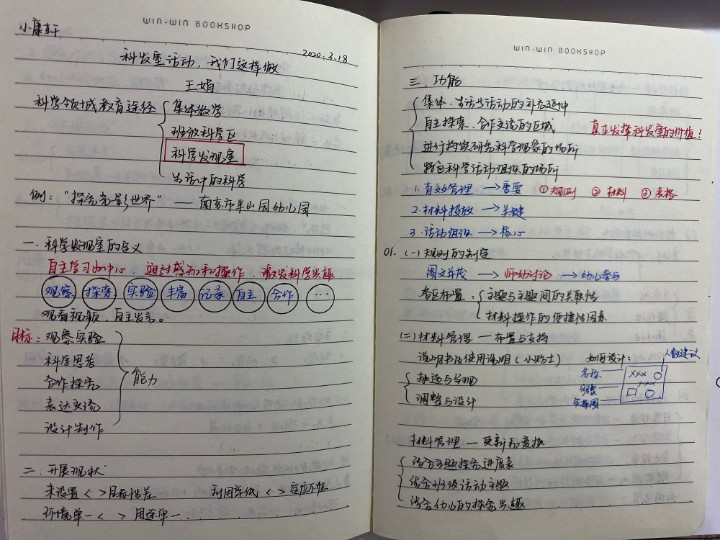 WIN-WIN BOOKSHOP
小康轩
2020.3.18
科发室活动,我们这样做
王娟
科学领域教育途径
集体教学
班级科学区
科学发现室
生活中的科学
例:“探究光影世界” —— 南京市半山园幼儿园
一.科学发现室的意义
自主学习为中心,通过感知和操作,激发科学兴趣
观察 探索 实验 丰富 记录 自主 合作 …
观看视频,自主发言。
目标:观察实验
科学思考
合作探究
表达交流
设计制作
能力
二.开展现状
未设置 < > 目标性差 利用率低 < >
环境单一 < > 用途单一..
WIN-WIN BOOKSHOP
三.功能
集体、生活化活动的补充延伸
自主探索、合作交流的区域
真正发挥科发室的价值!
进行持续研究科学现象的场所
特色科学活动组织的场所
1.有效管理 → 重要 ①规则 ② 材料 ③ 表格
2.材料投放 → 关键
3.活动组织 → 核心
01. (一)规则的制定
图文并茂 → 师幼讨论 → 幼儿参与
布置:主题与主题间的关联性
材料操作的便捷性因素
(二)材料管理 — 布置与支持
说明书及使用说明(小贴士) 如何设计:
人数建议
名称
步骤
调整与设计
材料管理 — 更新和变换
结合主题探究进度表
结合班级活动主题
结合幼儿的探究兴趣